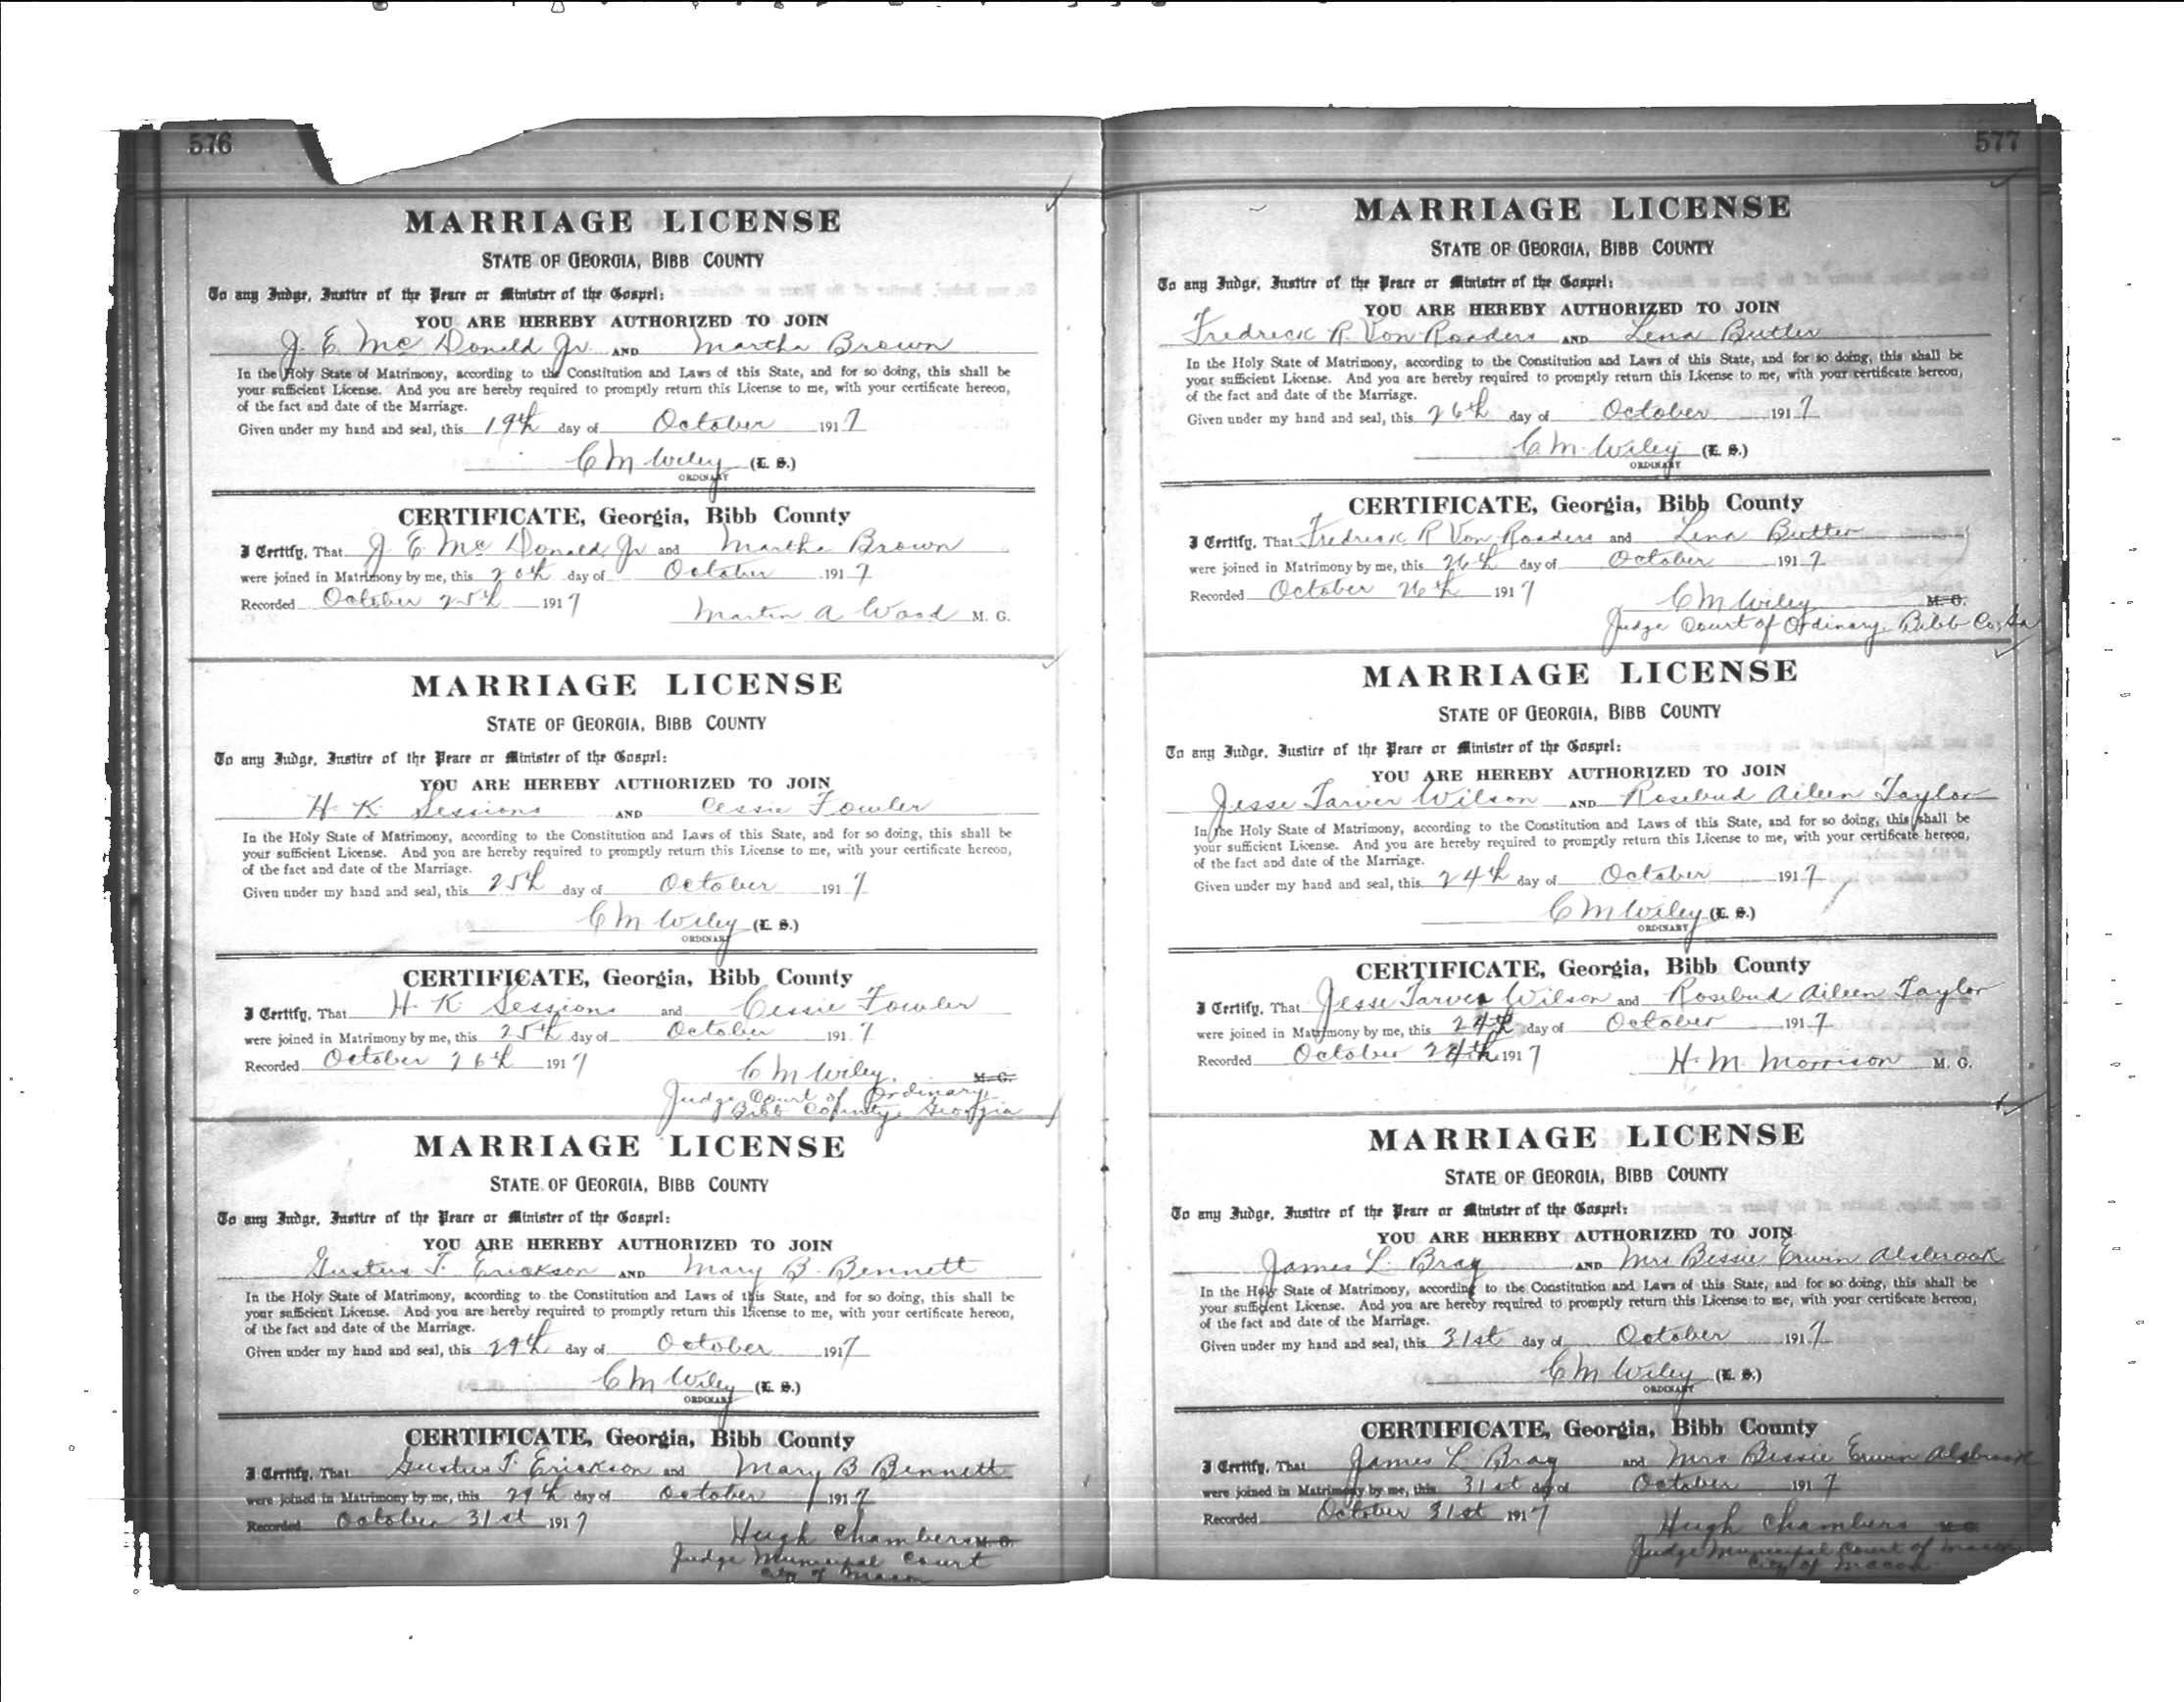 576
MARRIAGE LICENSE
STATE OF GEORGIA, BIBB COUNTY
To any Judge, Justice of the Peace or Minister of the Gospel:
YOU ARE HEREBY AUTHORIZED TO JOIN
J. E. Mc Donald Jr. AND Martha Brown
In the Holy State of Matrimony, according to the Constitution and Laws of this State, and for so doing, this shall be
your sufficient License. And you are hereby required to promptly return this License to me, with your certificate hereon,
of the fact and date of the Marriage.
Given under my hand and seal, this 19th day of October 1917
C M Wiley (L. S.)
ORDINARY
CERTIFICATE, Georgia, Bibb County
I Certify, That J E Mc Donald, Jr and Martha Brown
were joined in Matrimony by me, this 20th day of October 1917
Recorded October 25th 1917
Martin A Wood M. G.
MARRIAGE LICENSE
STATE OF GEORGIA, BIBB COUNTY
To any Judge, Justice of the Peace or Minister of the Gospel:
YOU ARE HEREBY AUTHORIZED TO JOIN
H. K. Sessions AND Cessie Fowler
In the Holy State of Matrimony, according to the Constitution and Laws of this State, and for so doing, this shall be
your sufficient License. And you are hereby required to promptly return this License to me, with your certificate hereon,
of the fact and date of the Marriage.
Given under my hand and seal, this 25th day of October 1917
C M Wiley (L. S.)
ORDINARY
CERTIFICATE, Georgia, Bibb County
I Certify, That H. K Sessions and Cessie Fowler
were joined in Matrimony by me, this 25th day of October 1917
Recorded October 26th 1917
C M Wiley. M. G.
Judge Court of Ordinary
Bibb County, Georgia
MARRIAGE LICENSE
STATE OF GEORGIA, BIBB COUNTY
To any Judge, Justice of the Peace or Minister of the Gospel:
YOU ARE HEREBY AUTHORIZED TO JOIN
Gustus T. Erickson AND Mary B. Bennett
In the Holy State of Matrimony, according to the Constitution and Laws of this State, and for so doing, this shall be
your sufficient License. And you are hereby required to promptly return this License to me, with your certificate hereon,
of the fact and date of the Marriage.
Given under my hand and seal, this 29th day of October 1917
C M Wiley (L. S.)
ORDINARY
CERTIFICATE, Georgia, Bibb County
I Certify, That Gustus T. Erickson and Mary B Bennett
were joined in Matrimony by me, this 29th day of October 1917
Recorded October 31st 1917
Hugh Chambers M. G.
Judge Municipal Court
City of Macon
577
MARRIAGE LICENSE
STATE OF GEORGIA, BIBB COUNTY
To any Judge, Justice of the Peace or Minister of the Gospel:
YOU ARE HEREBY AUTHORIZED TO JOIN
Fredrick R. Von Roaders AND Lena Butler
In the Holy State of Matrimony, according to the Constitution and Laws of this State, and for so doing, this shall be
your sufficient License. And you are hereby required to promptly return this License to me, with your certificate hereon,
of the fact and date of the Marriage.
Given under my hand and seal, this 26th day of October 1917
C. M. Wiley (L. S.)
ORDINARY
CERTIFICATE, Georgia, Bibb County
I Certify, That Fredrick R Von Roaders and Lena Butler
were joined in Matrimony by me, this 26th day of October 1917
Recorded October 26th 1917
C M Wiley M. G.
Judge Court of Ordinary, Bibb Co, Ga
MARRIAGE LICENSE
STATE OF GEORGIA, BIBB COUNTY
To any Judge, Justice of the Peace or Minister of the Gospel:
YOU ARE HEREBY AUTHORIZED TO JOIN
Jesse Tarver Wilson AND Rosebud Aileen Taylor
In the Holy State of Matrimony, according to the Constitution and Laws of this State, and for so doing, this shall be
your sufficient License. And you are hereby required to promptly return this License to me, with your certificate hereon,
of the fact and date of the Marriage.
Given under my hand and seal, this 24th day of October 1917
C M Wiley (L. S.)
ORDINARY
CERTIFICATE, Georgia, Bibb County
I Certify, That Jesse Tarver Wilson and Rosebud Aileen Taylor
were joined in Matrimony by me, this 24th day of October 1917
Recorded October 24th 1917
H. M. Morrison M. G.
MARRIAGE LICENSE
STATE OF GEORGIA, BIBB COUNTY
To any Judge, Justice of the Peace or Minister of the Gospel:
YOU ARE HEREBY AUTHORIZED TO JOIN
James L. Bray AND Mrs Bessie Erwin Alsbrook
In the Holy State of Matrimony, according to the Constitution and Laws of this State, and for so doing, this shall be
your sufficient License. And you are hereby required to promptly return this License to me, with your certificate hereon,
of the fact and date of the Marriage.
Given under my hand and seal, this 31st day of October 1917
C M Wiley (L. S.)
ORDINARY
CERTIFICATE, Georgia, Bibb County
I Certify, That James L Bray and Mrs Bessie Erwin Alsbrook
were joined in Matrimony by me, this 31st day of October 1917
Recorded October 31st 1917
Hugh Chambers M. G.
Judge Municipal Court of Macon
City of Macon